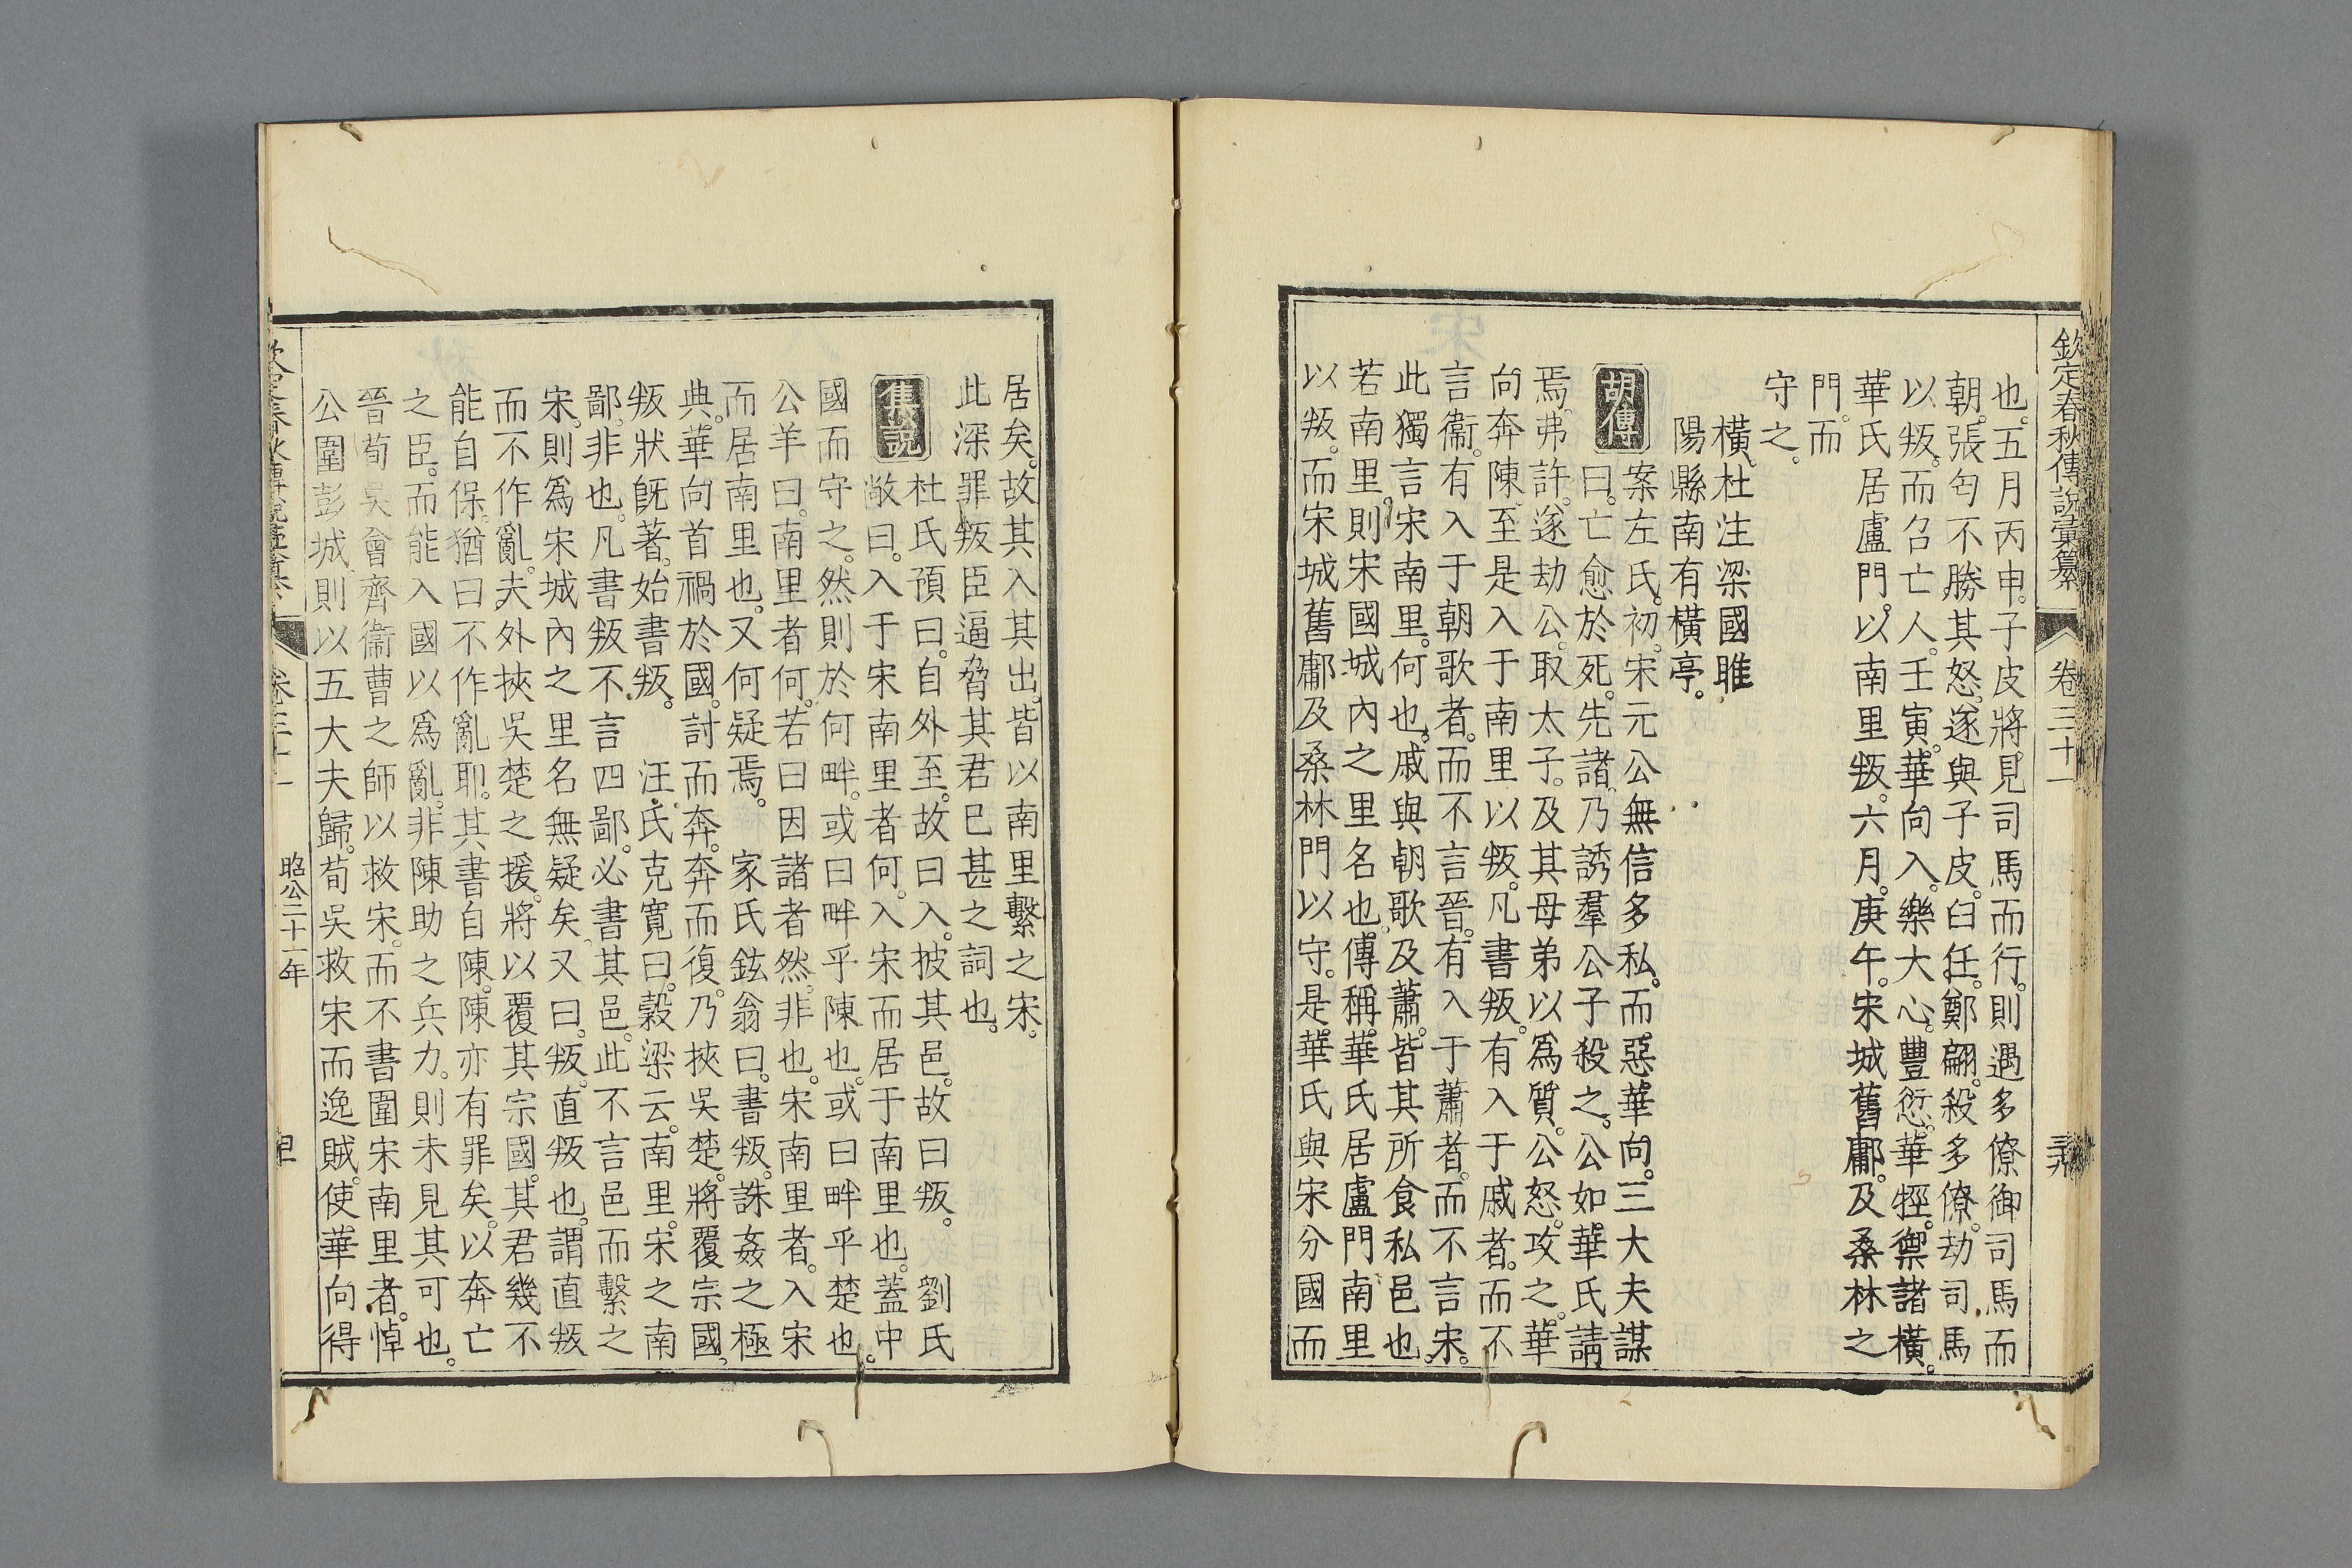 欽定春秋傳說彙纂 卷三十一
也。五月丙申。子皮將見司馬而行。則遇多僚御司馬而
朝。張匄不勝其怒。遂與子皮。臼任。鄭翩。殺多僚。劫司馬
以叛。而召亡人。壬寅。華向入。樂大心。豐愆。華牼。禦諸橫。
華氏居盧門。以南里叛。六月。庚午。宋城舊鄘。及桑林之
門。而
守之。
橫。杜注梁國睢
陽縣南有橫亭。
胡傳 案左氏。初。宋元公無信多私。而惡華向。三大夫謀
曰。亡愈於死。先諸。乃誘羣公子殺之。公如華氏請
焉。弗許。遂劫公。取太子。及其母弟以爲質。公怒。攻之。華
向奔陳。至是入于南里以叛。凡書叛。有入于戚者。而不
言衞。有入于朝歌者。而不言晉。有入于蕭者。而不言宋。
此獨言宋南里。何也。戚與朝歌及蕭。皆其所食私邑也。
若南里。則宋國城內之里名也。傳稱。華氏居盧門南里
以叛。而宋城舊鄘及桑林門以守。是華氏與宋分國而
居矣。故其入其出。皆以南里繫之宋。
此深罪叛臣逼脅其君已甚之詞也。
集說 杜氏預曰。自外至。故曰入。披其邑。故曰叛。 劉氏
敞曰。入于宋南里者何。入宋而居于南里也。蓋中
國而守之。然則於何畔。或曰畔乎陳也。或曰畔乎楚也。
公羊曰。南里者何。若曰因諸者然。非也。宋南里者。入宋
而居南里也。又何疑焉。 家氏鉉翁曰。書叛。誅姦之極
典。華向首禍於國。討而奔。奔而復。乃挾吳楚。將覆宗國。
叛狀旣著。始書叛。 汪氏克寬曰。穀梁云。南里。宋之南
鄙。非也。凡書叛不言四鄙。必書其邑。此不言邑而繫之
宋。則爲宋城內之里名無疑矣。又曰。叛。直叛也。謂直叛
而不作亂。夫外挾吳楚之援。將以覆其宗國。其君幾不
能自保。猶曰不作亂耶。其書自陳。陳亦有罪矣。以奔亡
之臣。而能入國以爲亂。非陳助之兵力。則未見其可也。
晉荀吳會齊衞曹之師以救宋。而不書圍宋南里者。悼
公圍彭城。則以五大夫歸。荀吳救宋而逸賊。使華向得
昭公二十一年